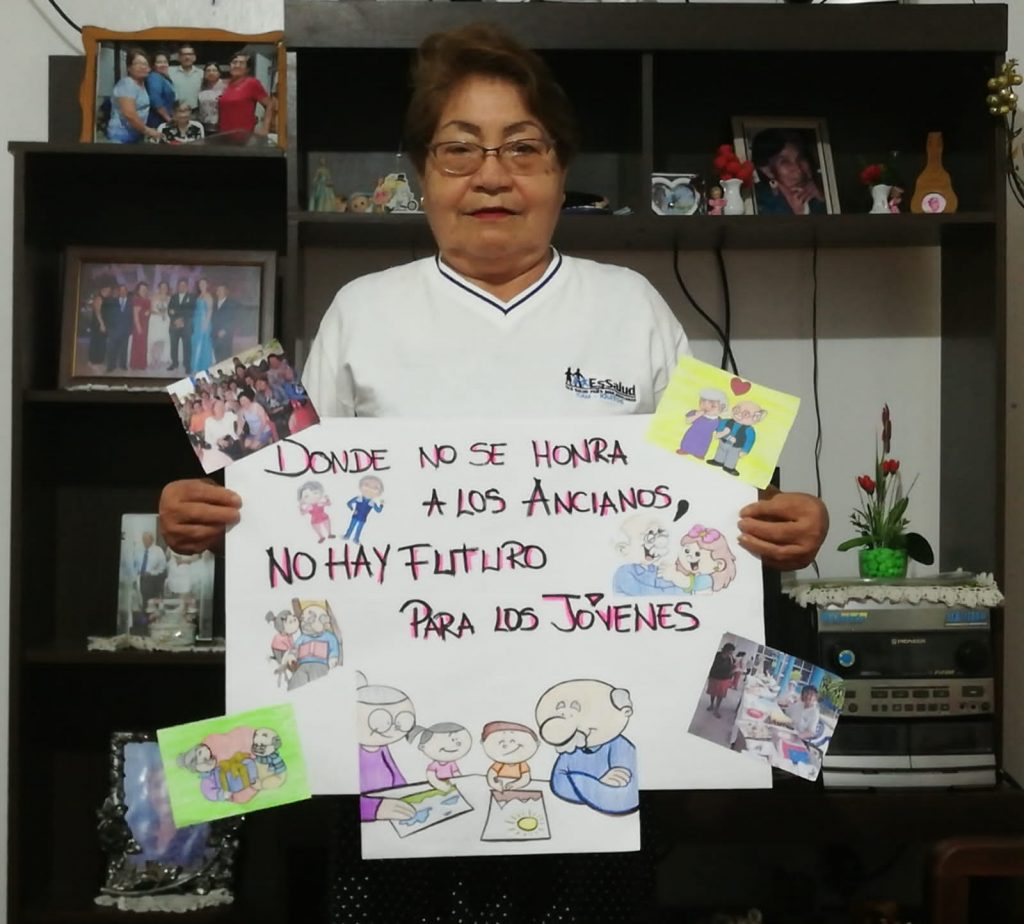 EsSalud
DONDE NO SE HONRA
A LOS ANCIANOS,
NO HAY FUTURO
PARA LOS JÓVENES
PIONEER